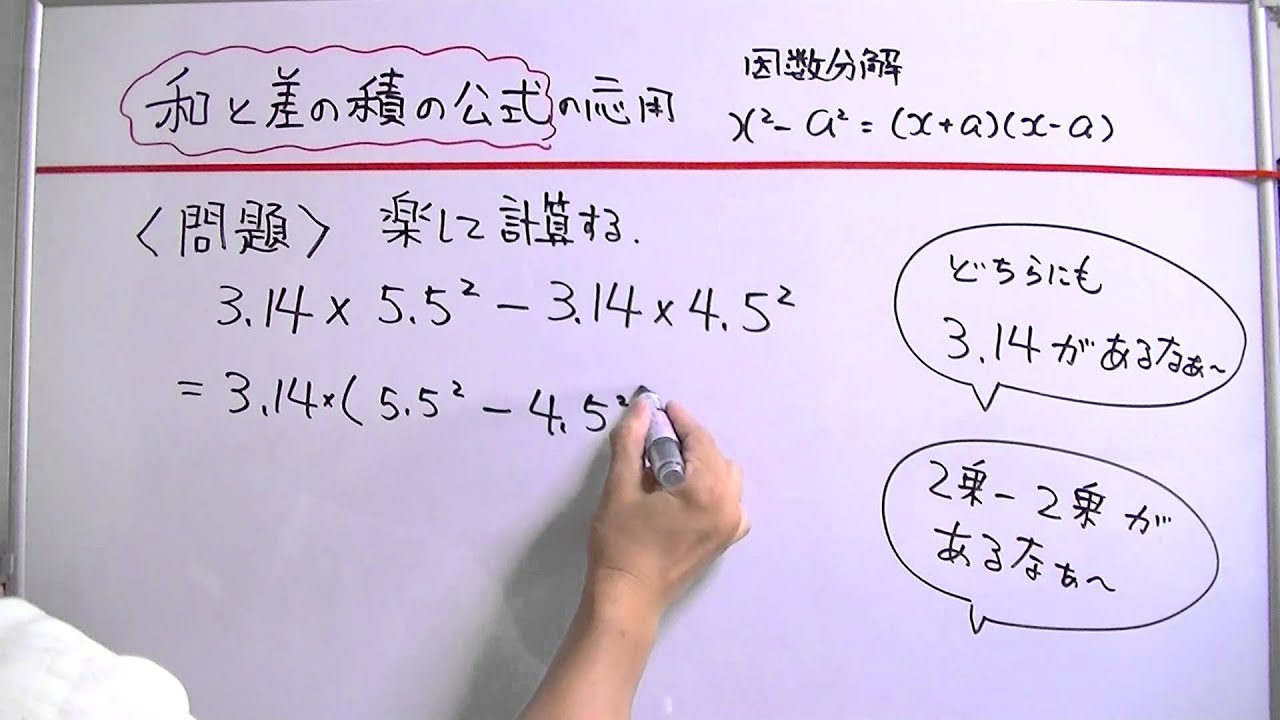 和と差の積の公式の応用
因数分解
x²-a²=(x+a)(x-a)
〈問題〉 楽して計算する.
3.14×5.5²-3.14×4.5²
=3.14×(5.5²-4.5²
どちらにも
3.14があるなぁ〜
2乗-2乗が
あるなぁ〜